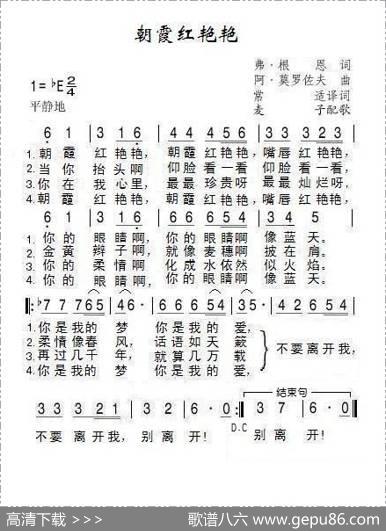 朝霞红艳艳
弗·根 恩 词
阿·莫罗佐夫 曲
1=♭E 2/4 常 适译词
平静地 麦 子配歌
6 1 | 3 1 6 | 4 4 4 5 6 | 3 3 3 | 4 4 4 5 6 | 3 3 3 2 3 |
1. 朝 霞 红 艳艳, 朝霞 红艳艳, 嘴唇 红艳艳,
2. 当 你 抬 头啊 仰脸 看一看, 仰脸 看一看,
3. 你 在 我 心里, 最最 珍贵呀, 最最 灿烂呀,
4. 朝 霞 红 艳艳, 朝霞 红艳艳, 嘴唇 红艳艳,
6 1 | 3 1 6 | 4 4 4 5 6 | 3 3 3 | 3 4 5 |
1. 你 的 眼 睛啊, 你的 眼睛啊 像 蓝 天。
2. 金 黄 辫 子啊, 就像 麦穗啊 披 在 肩。
3. 你 的 柔 情啊 化成 水依然 似 火 焰。
4. 你 的 眼 睛啊, 你的 眼睛啊 像 蓝 天。
‖: ♭7 7 7 6 5 | 4 6· | 6 6 6 5 4 | 3 5· | 4 2 6 5 4 |
1. 你 是 我的 梦 你 是 我的 爱,
2. 柔 情 像春 风, 话 语 如天 籁
3. 再 过 几千 年, 就 算 几万 载
4. 你 是 我的 梦 你 是 我的 爱,
不要 离开我,
结束句
3 3 3 2 1 | 3 2 | 6· 0 :‖ 3 7 | 6· 0 ‖
D.C
不要 离开 我, 别 离 开! 别 离 开!
高清下载 >>>
歌谱八六 www.gepu86.com